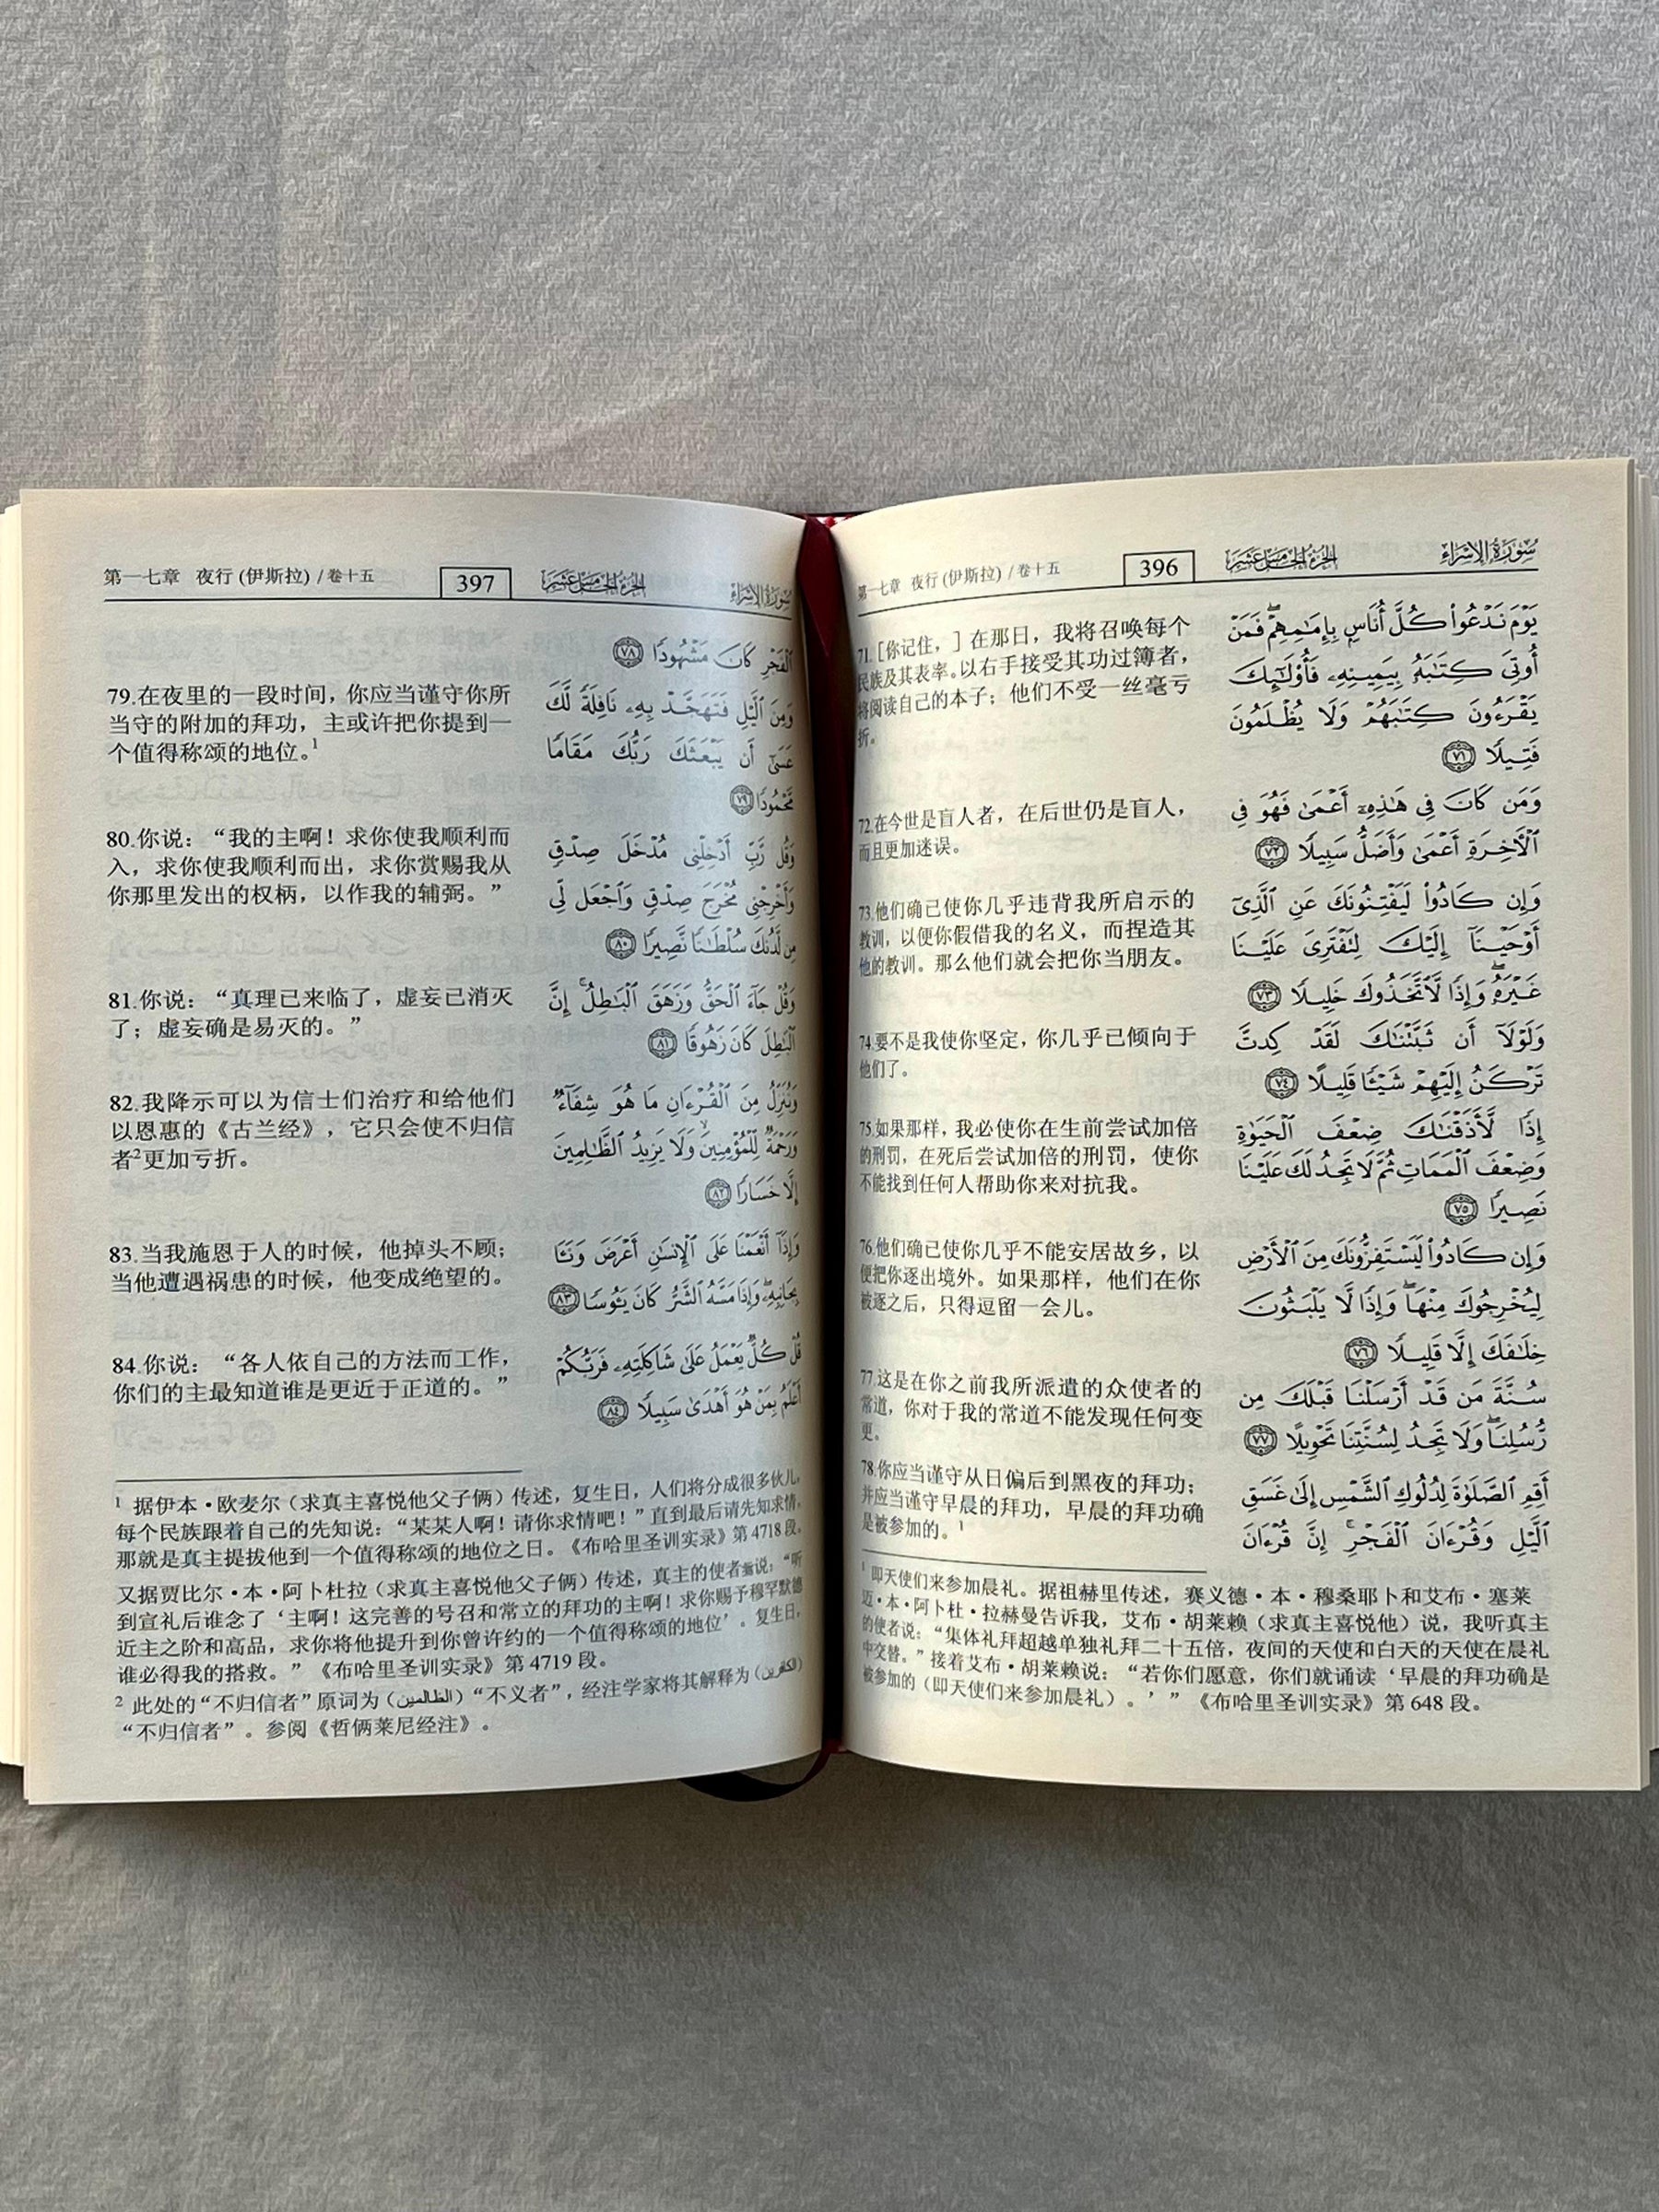 سُورَةُ الإِسْرَاءِ
الجُزْءُ الخَامِسَ عَشَرَ
396
第一七章 夜行 (伊斯拉) / 卷十五
يَوْمَ نَدْعُوا۟ كُلَّ أُنَاسٍۭ بِإِمَٰمِهِمْ ۖ فَمَنْ
أُوتِىَ كِتَٰبَهُۥ بِيَمِينِهِۦ فَأُو۟لَٰٓئِكَ
يَقْرَءُونَ كِتَٰبَهُمْ وَلَا يُظْلَمُونَ
فَتِيلًا ٧١
وَمَن كَانَ فِى هَٰذِهِۦٓ أَعْمَىٰ فَهُوَ فِى
ٱلْءَاخِرَةِ أَعْمَىٰ وَأَضَلُّ سَبِيلًا ٧٢
وَإِن كَادُوا۟ لَيَفْتِنُونَكَ عَنِ ٱلَّذِىٓ
أَوْحَيْنَآ إِلَيْكَ لِتَفْتَرِىَ عَلَيْنَا
غَيْرَهُۥ ۖ وَإِذًا لَّٱتَّخَذُوكَ خَلِيلًا ٧٣
وَلَوْلَآ أَن ثَبَّتْنَٰكَ لَقَدْ كِدتَّ
تَرْكَنُ إِلَيْهِمْ شَيْـًٔا قَلِيلًا ٧٤
إِذًا لَّأَذَقْنَٰكَ ضِعْفَ ٱلْحَيَوٰةِ
وَضِعْفَ ٱلْمَمَاتِ ثُمَّ لَا تَجِدُ لَكَ عَلَيْنَا
نَصِيرًا ٧٥
وَإِن كَادُوا۟ لَيَسْتَفِزُّونَكَ مِنَ ٱلْأَرْضِ
لِيُخْرِجُوكَ مِنْهَا ۖ وَإِذًا لَّا يَلْبَثُونَ
خِلَٰفَكَ إِلَّا قَلِيلًا ٧٦
سُنَّةَ مَن قَدْ أَرْسَلْنَا قَبْلَكَ مِن
رُّسُلِنَا ۖ وَلَا تَجِدُ لِسُنَّتِنَا تَحْوِيلًا ٧٧
أَقِمِ ٱلصَّلَوٰةَ لِدُلُوكِ ٱلشَّمْسِ إِلَىٰ غَسَقِ
ٱلَّيْلِ وَقُرْءَانَ ٱلْفَجْرِ ۖ إِنَّ قُرْءَانَ
71.[你记住，] 在那日，我将召唤每个
民族及其表率。以右手接受其功过簿者，
将阅读自己的本子；他们不受一丝毫亏
折。
72.在今世是盲人者，在后世仍是盲人，
而且更加迷误。
73.他们确已使你几乎违背我所启示的
教训，以便你假借我的名义，而捏造其
他的教训。那么他们就会把你当朋友。
74.要不是我使你坚定，你几乎已倾向于
他们了。
75.如果那样，我必使你在生前尝试加倍
的刑罚，在死后尝试加倍的刑罚，使你
不能找到任何人帮助你来对抗我。
76.他们确已使你几乎不能安居故乡，以
便把你逐出境外。如果那样，他们在你
被逐之后，只得逗留一会儿。
77.这是在你之前我所派遣的众使者的
常道，你对于我的常道不能发现任何变
更。
78.你应当谨守从日偏后到黑夜的拜功；
并应当谨守早晨的拜功，早晨的拜功确
是被参加的。1
1 即天使们来参加晨礼。据祖赫里传述，赛义德·本·穆桑耶卜和艾布·塞莱
迈·本·阿卜杜·拉赫曼告诉我，艾布·胡莱赖（求真主喜悦他）说，我听真主
的使者说：“集体礼拜超越单独礼拜二十五倍，夜间的天使和白天的天使在晨礼
中交替。”接着艾布·胡莱赖说：“若你们愿意，你们就诵读‘早晨的拜功确是
被参加的（即天使们来参加晨礼）。’”《布哈里圣训实录》第 648 段。
سُورَةُ الإِسْرَاءِ
الجُزْءُ الخَامِسَ عَشَرَ
397
第一七章 夜行 (伊斯拉) / 卷十五
ٱلْفَجْرِ كَانَ مَشْهُودًا ٧٨
وَمِنَ ٱلَّيْلِ فَتَهَجَّدْ بِهِۦ نَافِلَةً لَّكَ
عَسَىٰٓ أَن يَبْعَثَكَ رَبُّكَ مَقَامًا
مَّحْمُودًا ٧٩
وَقُل رَّبِّ أَدْخِلْنِى مُدْخَلَ صِدْقٍ
وَأَخْرِجْنِى مُخْرَجَ صِدْقٍ وَٱجْعَل لِّى
مِن لَّدُنكَ سُلْطَٰنًا نَّصِيرًا ٨٠
وَقُلْ جَآءَ ٱلْحَقُّ وَزَهَقَ ٱلْبَٰطِلُ ۚ إِنَّ
ٱلْبَٰطِلَ كَانَ زَهُوقًا ٨١
وَنُنَزِّلُ مِنَ ٱلْقُرْءَانِ مَا هُوَ شِفَآءٌ
وَرَحْمَةٌ لِّلْمُؤْمِنِينَ ۙ وَلَا يَزِيدُ ٱلظَّٰلِمِينَ
إِلَّا خَسَارًا ٨٢
وَإِذَآ أَنْعَمْنَا عَلَى ٱلْإِنسَٰنِ أَعْرَضَ وَنَـَٔا
بِجَانِبِهِۦ ۖ وَإِذَا مَسَّهُ ٱلشَّرُّ كَانَ يَـُٔوسًا ٨٣
قُلْ كُلٌّ يَعْمَلُ عَلَىٰ شَاكِلَتِهِۦ فَرَبُّكُمْ
أَعْلَمُ بِمَنْ هُوَ أَهْدَىٰ سَبِيلًا ٨٤
79.在夜里的一段时间，你应当谨守你所
当守的附加的拜功，主或许把你提到一
个值得称颂的地位。1
80.你说：“我的主啊！求你使我顺利而
入，求你使我顺利而出，求你赏赐我从
你那里发出的权柄，以作我的辅弼。”
81.你说：“真理已来临了，虚妄已消灭
了；虚妄确是易灭的。”
82.我降示可以为信士们治疗和给他们
以恩惠的《古兰经》，它只会使不归信
者2更加亏折。
83.当我施恩于人的时候，他掉头不顾；
当他遭遇祸患的时候，他变成绝望的。
84.你说：“各人依自己的方法而工作，
你们的主最知道谁是更近于正道的。”
1 据伊本·欧麦尔（求真主喜悦他父子俩）传述，复生日，人们将分成很多伙儿，
每个民族跟着自己的先知说：“某某人啊！请你求情吧！”直到最后请先知求情，
那就是真主提拔他到一个值得称颂的地位之日。《布哈里圣训实录》第 4718 段。
又据贾比尔·本·阿卜杜拉（求真主喜悦他父子俩）传述，真主的使者ﷺ说：“听
到宣礼后谁念了‘主啊！这完善的号召和常立的拜功的主啊！求你赐予穆罕默德
近主之阶和高品，求你将他提升到你曾许约的一个值得称颂的地位’。复生日，
谁必得我的搭救。”《布哈里圣训实录》第 4719 段。
2 此处的“不归信者”原词为（الظالمين）“不义者”，经注学家将其解释为（الكافرين）
“不归信者”。参阅《哲俩莱尼经注》。